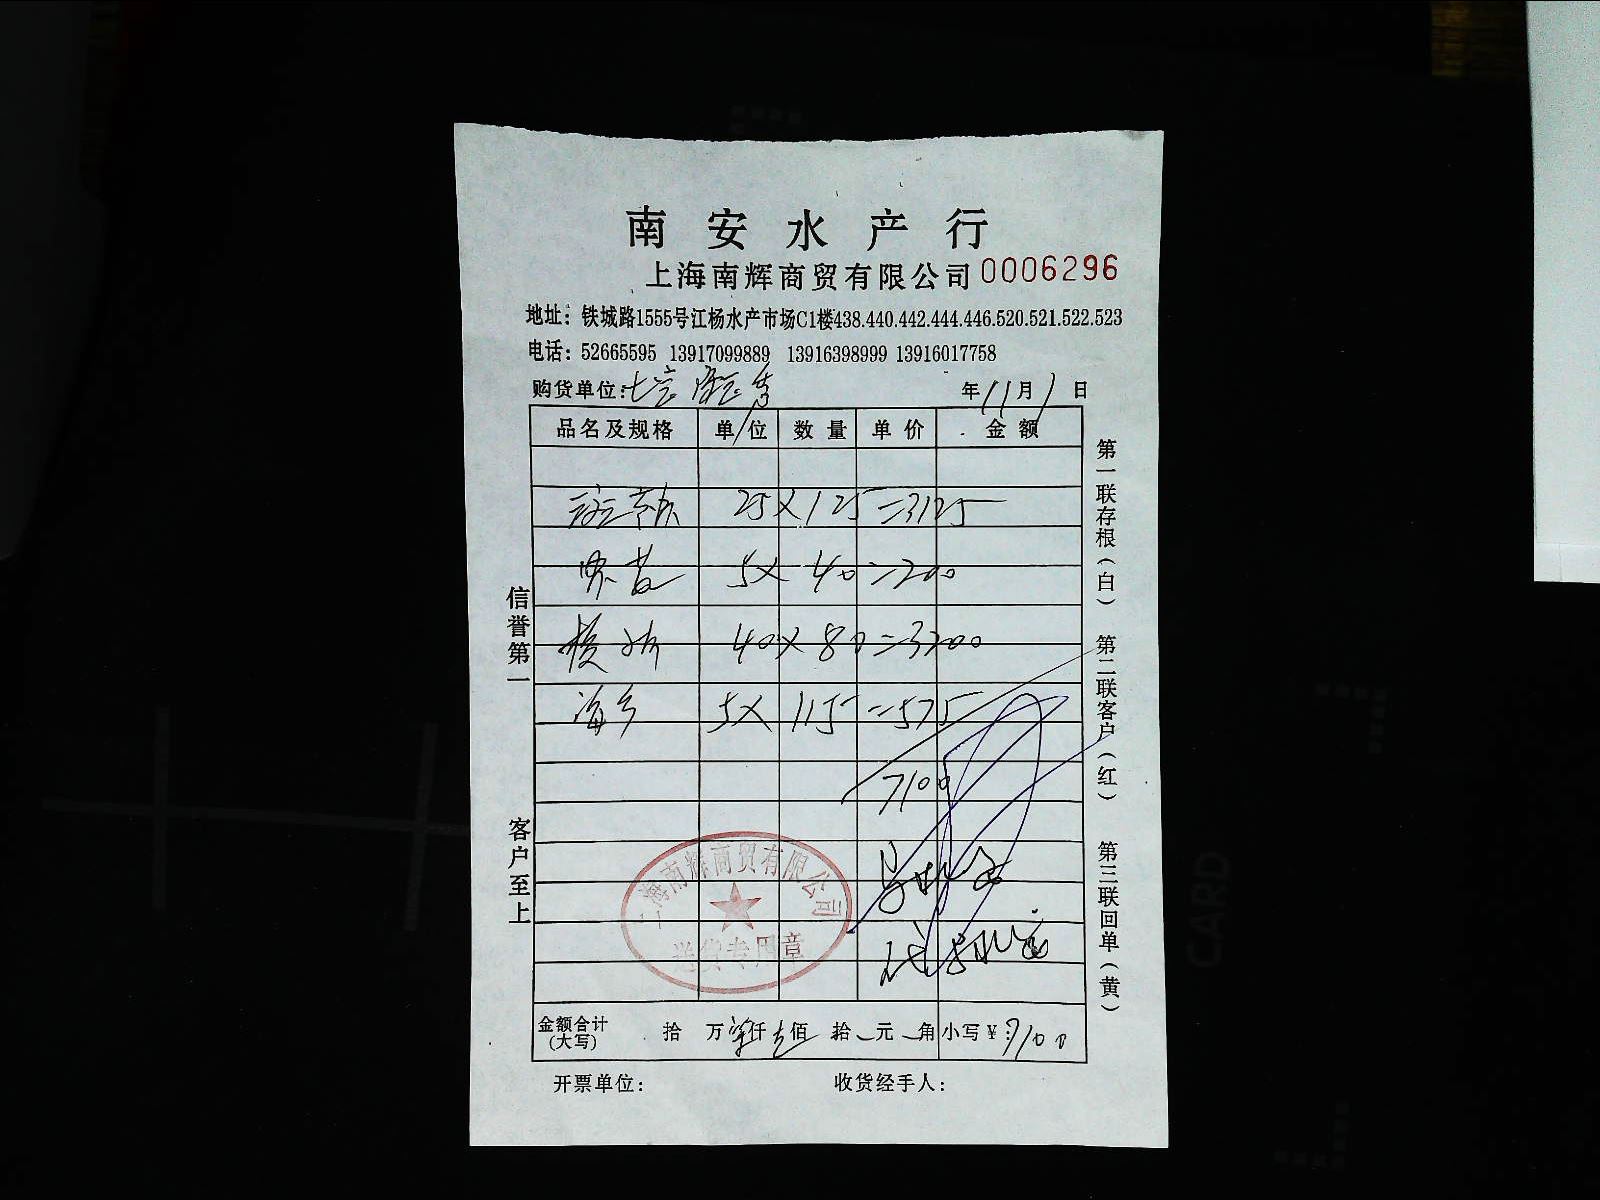 南安水产行
上海南辉商贸有限公司 0006296
地址：铁城路1555号江杨水产市场C1楼438.440.442.444.446.520.521.522.523
电话：52665595 13917099889 13916398999 13916017758
购货单位：七宝 年11月1日
品名及规格 单位 数量 单价 金额
25×125=3125
5×40=200
40×80=3200
5×115=575
7100
上海南辉商贸有限公司
送货专用章
金额合计(大写) 拾 万 柒仟 壹佰 拾 元 角 小写￥：7100
开票单位： 收货经手人：
信誉第一 客户至上
第一联存根（白） 第二联客户（红） 第三联回单（黄）